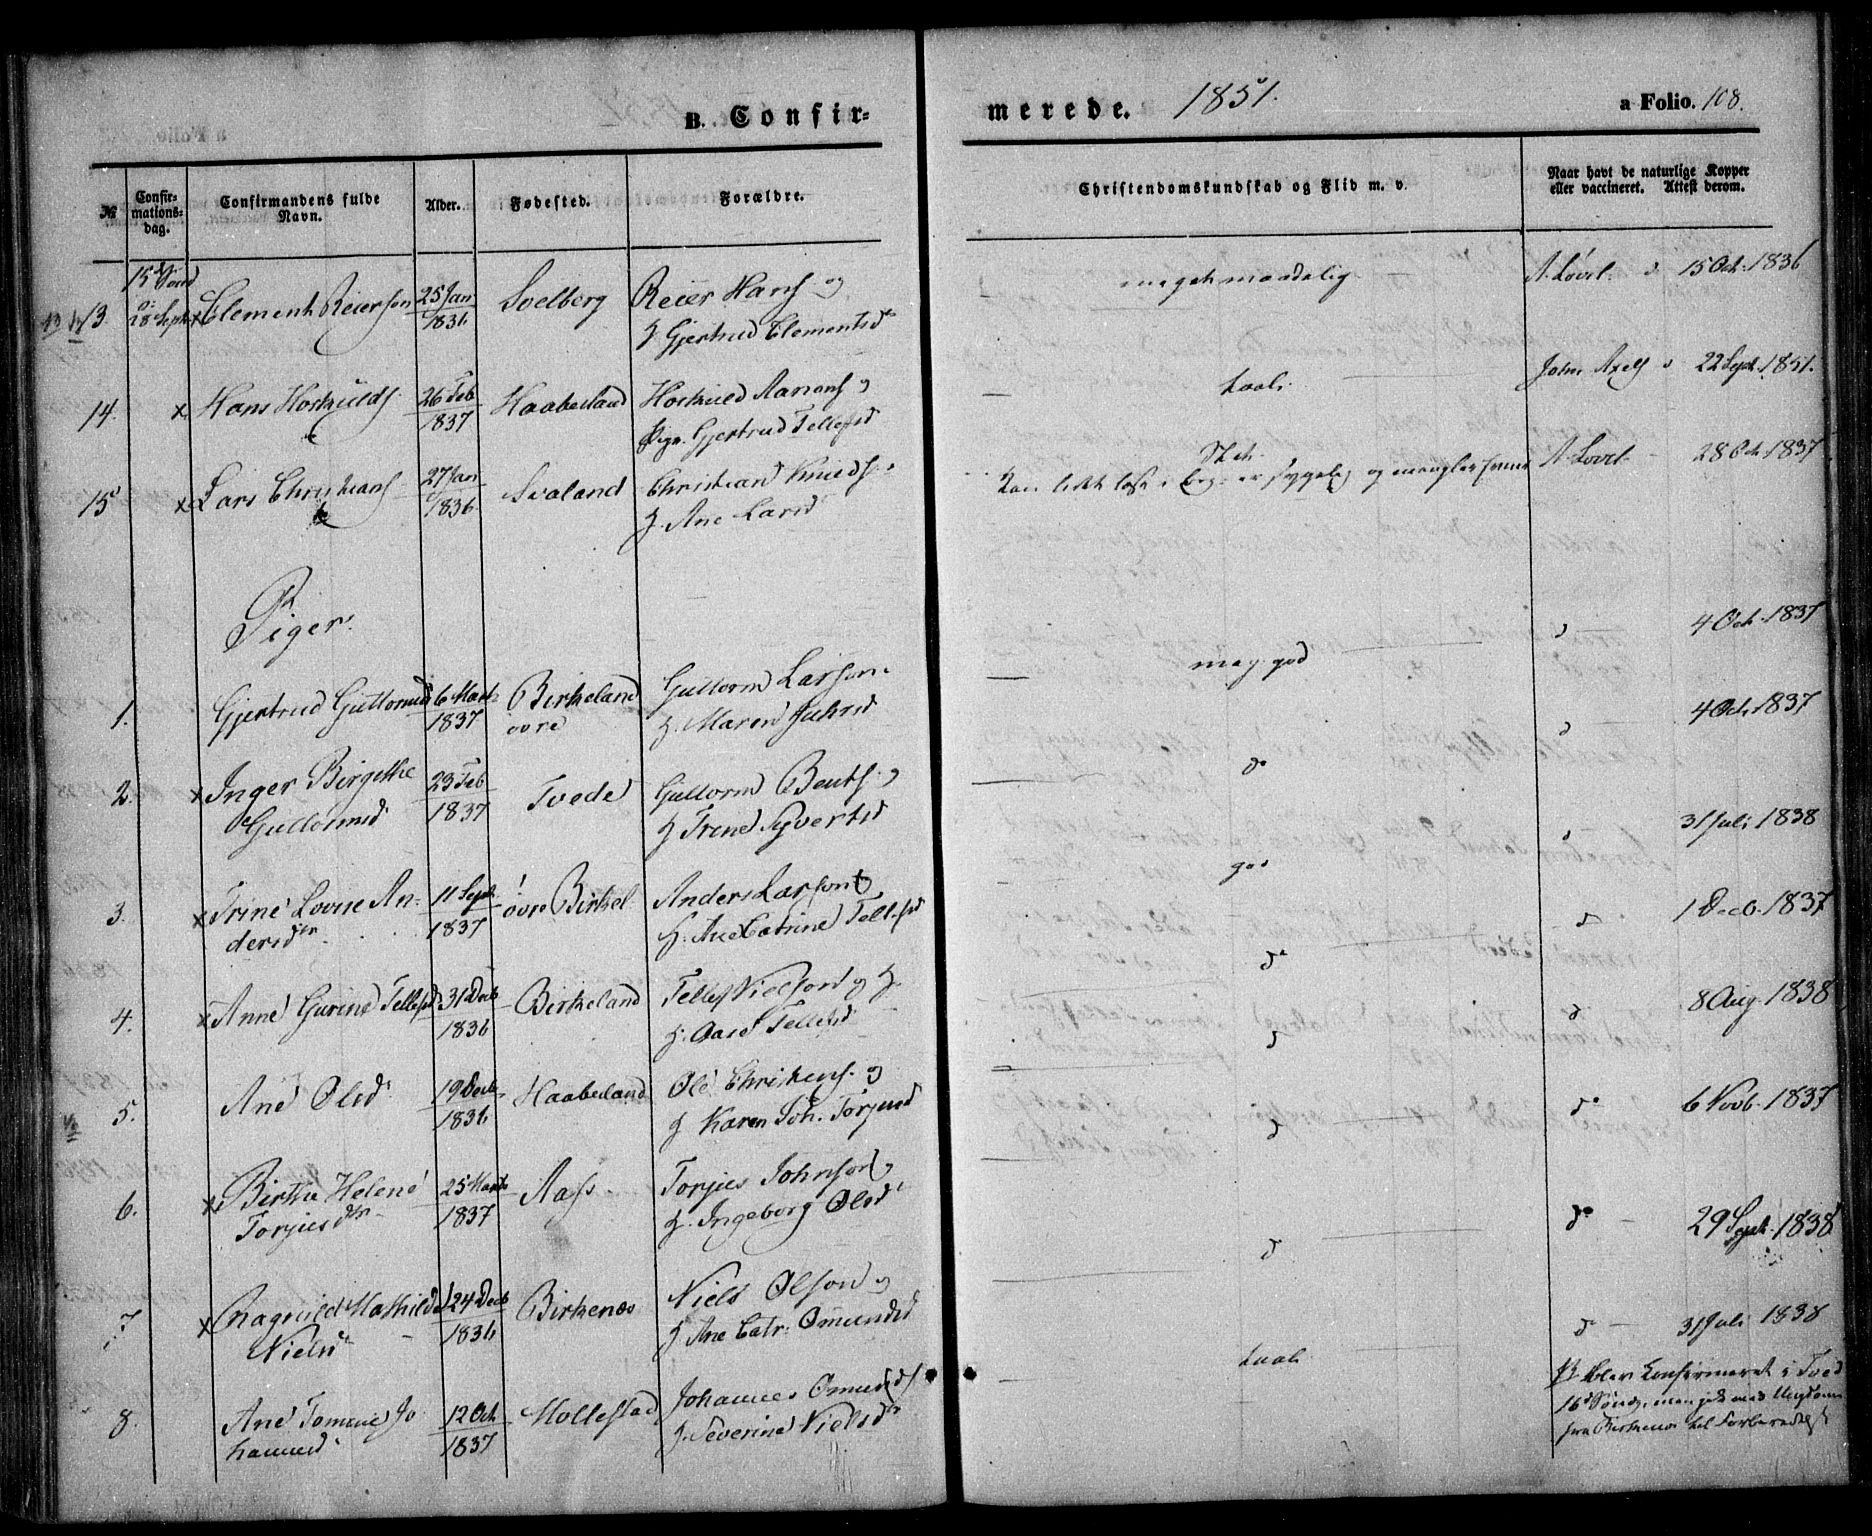 B. Confir-
merede. 1851.
a Folio. 108.
№
Confir-
mations-
dag.
Confirmandens fulde
Navn.
Alder.
Fødested.
Forældre.
Christendomskundskab og Flid m. v.
Naar havt de naturlige Kopper
eller vaccineret. Attest derom.
15de Sønd
28 Sept
13 x Clement Reierson 25 Jan 1836 Svelberg Reier Hans og
H Gjertrud Clementsd
meget maadelig
A. Løvel. d 15 Oct. 1836
14. x Hans Hoskulds 26 Feb 1837 Haabesland Hoskuld Aanons og
Pige. Gjertrud Tellefsd
taal.
John Axels d 22 Sept. 1851.
15 x Lars Christians 27 Jan 1836. Svaland Christian Knuds og
H. Ane Larsd
Slet.
Kan lidt læse i Bog er sygelig og mangler
A Løvel 28 Oct. 1837
Piger.
1. Gjertrud Guttormsd 6 Marts 1837 Birkeland
øvre
Guttorm Larson
H. Maren
mag. god
d 4 Oct. 1837
2. x Inger Birgithe
Guttormsd
23 Feb 1837 Tvede Guttorm Bents og
H Trine Syvertsd
do
d 4 Oct. 1837
3. x Trine Lovise An-
dersdtr
11 Sept 1837 øvre Birkel Anders Larson og
H. Ane Catrine Tellefsd
god
d 31 Juli 1838
4. x Anne Gurine Tellefsd 31 Decb 1836 Birkeland Tellef Nielson og H.
H. Aase Tellefsd
do
d 1 Decb. 1837
5. Ane Olsd 19 Decb 1836 Haabesland Ole Christens. og
H Karen Joh. Torjusd
d
d 8 Aug. 1838
6. x Birthe Helene
Torjusdtr
25 Marts 1837 Aas Torjus Johnson og
H. Ingeborg Olsd
d
do 6 Novb. 1837
7. x Ragnild Mathilde
Nielsd
24 Decb 1836 Birkenæs Niels Olson og
H Ane Catr. Omundsd
d
do 29 Sept. 1838
8. Ane Tomine Jo
hannesd
12 Oct 1837 Mollestad Johannes Omunds
H. Severine Nielsd
taal.
do 31 Juli 1838
blev Konfirmeret i Tved
16d Sønd, men gik med Ungdom
fra Birkenes til Forberedelse